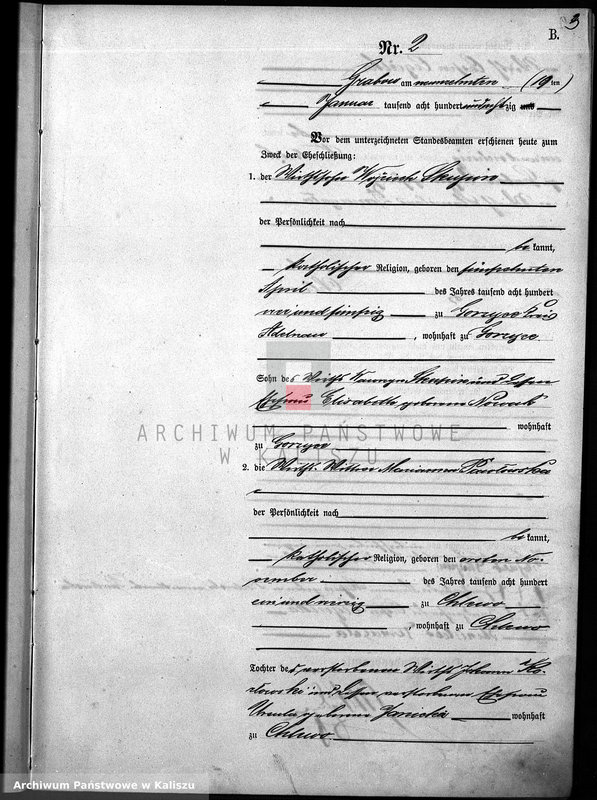 3
B.
Nr. 2
Grabow am neunzehnten (19ten)
Januar tausend acht hundert zig und
Vor dem unterzeichneten Standesbeamten erschienen heute zum
Zweck der Eheschließung:
1. der Wirthssohn Wojciech Skupin
der Persönlichkeit nach
be kannt,
katholischer Religion, geboren den
April des Jahres tausend acht hundert
und fünfzig zu Gorzyce Kreis
Adelnau, wohnhaft zu Gorzyce
Sohn des Wirths Skupin und dessen
Ehefrau Elisabetha geborene Nowak
wohnhaft
ARCHIWUM PAŃSTWOWE
zu Gorzyce
W KALISZU
2. die Wirths Wittwe Marianna
der Persönlichkeit nach
be kannt,
katholischer Religion, geboren den ersten No-
vember des Jahres tausend acht hundert
ein und vierzig zu Chlewo
, wohnhaft zu Chlewo
Tochter des verstorbenen Wirths Johann
und dessen verstorbenen Ehefrau
Ursula geborene Janicka wohnhaft
zu Chlewo
Archiwum Państwowe w Kaliszu